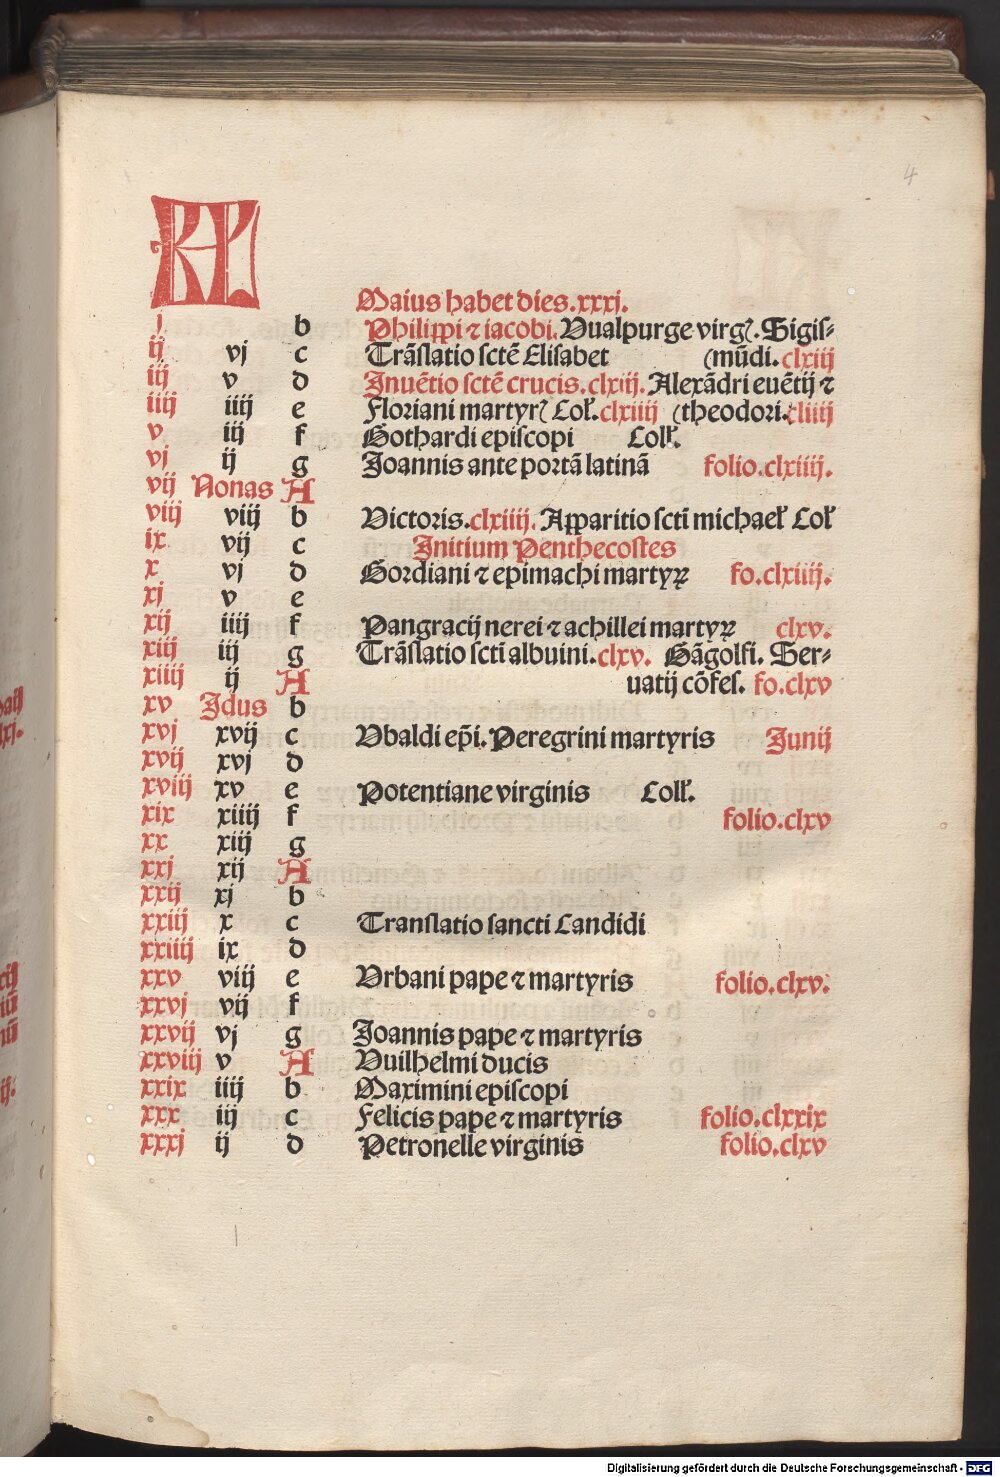 4
KL
Maius habet dies.xxxj.
j b Philippi ⁊ iacobi. Vualpurge virgꝭ. Sigis-
ij vj c Trãslatio sctẽ Elisabet (mũdi. clxiij
iij v d Inuẽtio sctẽ crucis. clxiij. Alexãdri euẽtij ⁊
iiij iiij e Floriani martyrꝭ Coł. clxiiij (theodori. cliiij
v iij f Gothardi episcopi Colł.
vj ij g Joannis ante portã latinã folio.clxiiij.
vij Nonas A
viij viij b Victoris. clxiiij. Apparitio scti michaeł Coł
ix vij c Initium Penthecostes
x vj d Gordiani ⁊ epimachi martyꝝ fo.clxiiij.
xj v e
xij iiij f Pangracij nerei ⁊ achillei martyꝝ clxv.
xiij iij g Trãslatio scti albuini. clxv. Gãgolfi. Ser-
xiiij ij A uatij cõfes. fo.clxv
xv Idus b
xvj xvij c Vbaldi ep̃i. Peregrini martyris Junij
xvij xvj d
xviij xv e Potentiane virginis Colł.
xix xiiij f folio.clxv
xx xiij g
xxj xij A
xxij xj b
xxiij x c Translatio sancti Candidi
xxiiij ix d
xxv viij e Vrbani pape ⁊ martyris folio.clxv.
xxvj vij f
xxvij vj g Joannis pape ⁊ martyris
xxviij v A Vuilhelmi ducis
xxix iiij b Maximini episcopi
xxx iij c Felicis pape ⁊ martyris folio.clxxix
xxxj ij d Petronelle virginis folio.clxv
Digitalisierung gefördert durch die Deutsche Forschungsgemeinschaft - DFG